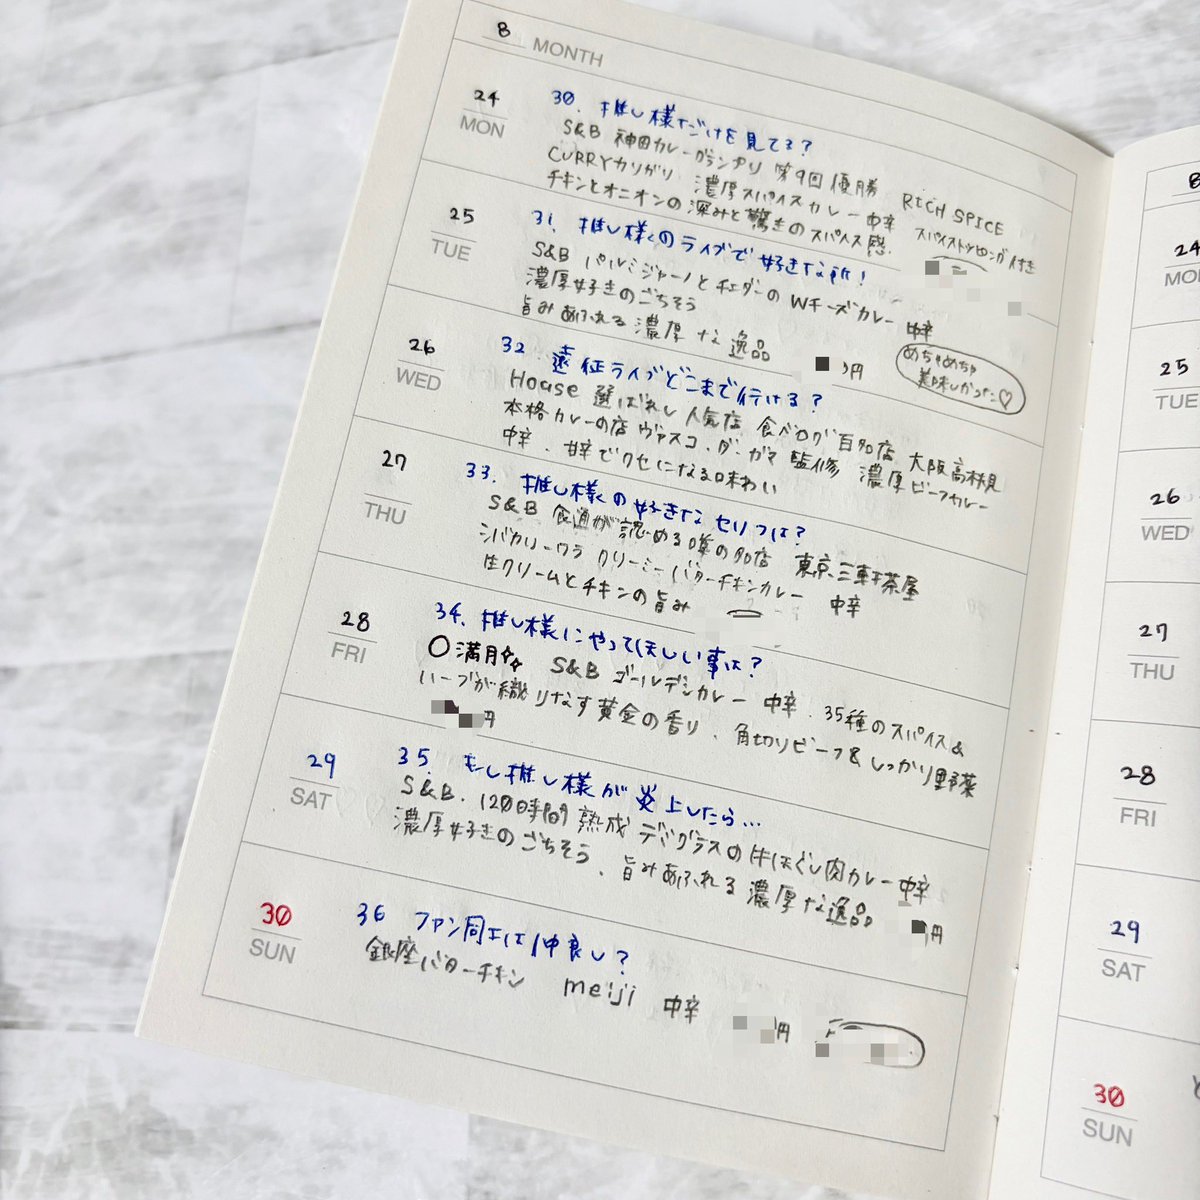 8 MONTH
24 MON
30. 推し様だけを見てる?
S&B 神田カレーグランプリ 第9回優勝 RICH SPICE
CURRYカリガリ 濃厚スパイスカレー 中辛 スパイストッピング付き
チキンとオニオンの深みと驚きのスパイス感.
25 TUE
31. 推し様のライブで好きな所!
S&B パルミジャーノとチェダーのWチーズカレー 中辛
濃厚好きのごちそう
旨みあふれる濃厚な逸品 円
めちゃめちゃ
美味しかった♡
26 WED
32. 遠征ライブどこまで行ける?
House 選ばれし人気店 食べログ百名店 大阪高槻
本格カレーの店 ヴァスコ・ダ・ガマ 監修 濃厚ビーフカレー
中辛. 甘辛でクセになる味わい
27 THU
33. 推し様の好きなセリフは?
S&B 食通が認める噂の名店 東京.三軒茶屋
シバカリーワラ クリーミーバターチキンカレー 中辛
生クリームとチキンの旨み
28 FRI
34. 推し様にやってほしい事は?
○満月✧✧ S&B ゴールデンカレー 中辛. 35種のスパイス&
ハーブが織りなす黄金の香り. 角切りビーフ&しっかり野菜
円
29 SAT
35. もし推し様が炎上したら…
S&B. 120時間熟成 デミグラスの牛ほぐし肉カレー 中辛
濃厚好きのごちそう. 旨みあふれる濃厚な逸品 円
30 SUN
36 ファン同士は仲良し?
銀座バターチキン meiji 中辛 円
8
24
MO
25
TUE
26
WED
27
THU
28
FRI
29
SAT
30
SUN